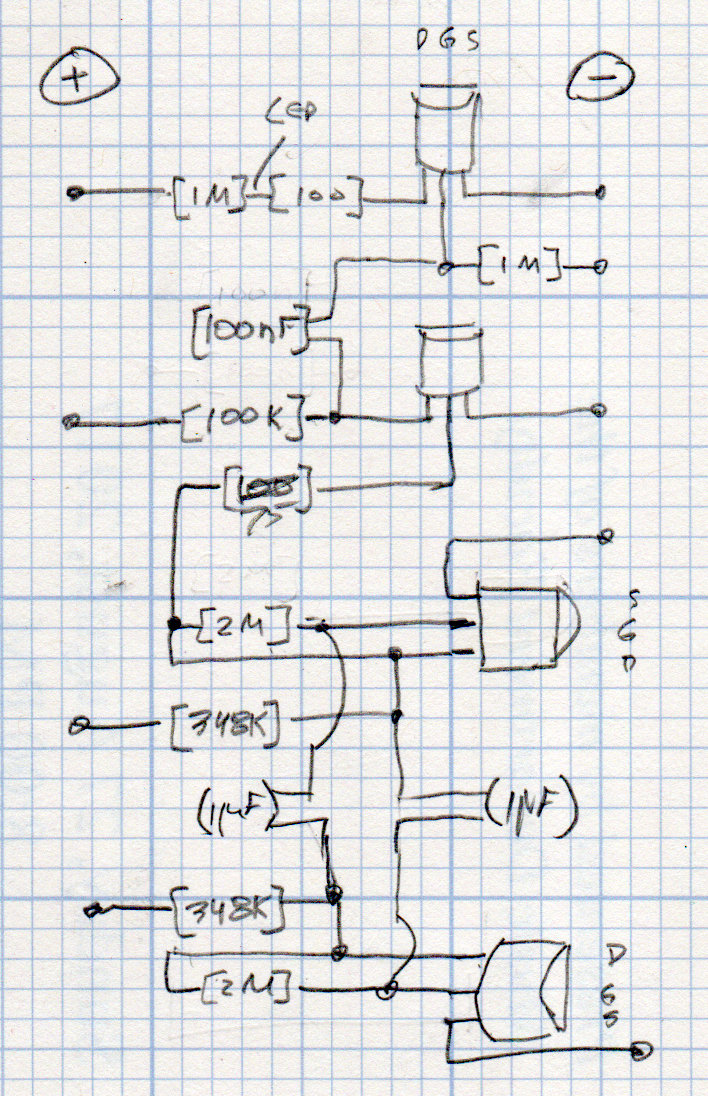 D G S
+ -
LED
[1M] [100]
[1M]
[100nF]
[100K]
[2M]
S
G
D
[348K]
(1µF) (1µF)
[348K]
D
[2M] G
S